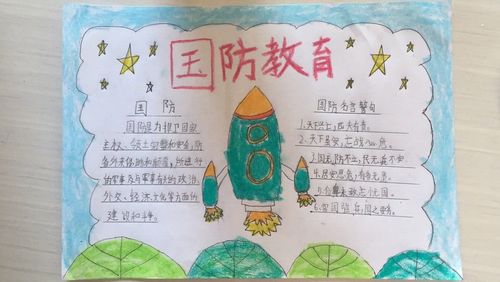 国防教育
国 防
国防是为捍卫国家
主权、领土完整和安全，防
备外来侵略和颠覆，所进行
的军事及与军事有关的政治、
外交、经济、文化等方面的
建设和斗争。
国防名言警句
1.天下兴亡，匹夫有责。
2.天下虽安，忘战必危。
3.国无防不立，民无兵不安。
4.居安思危，有备无患。